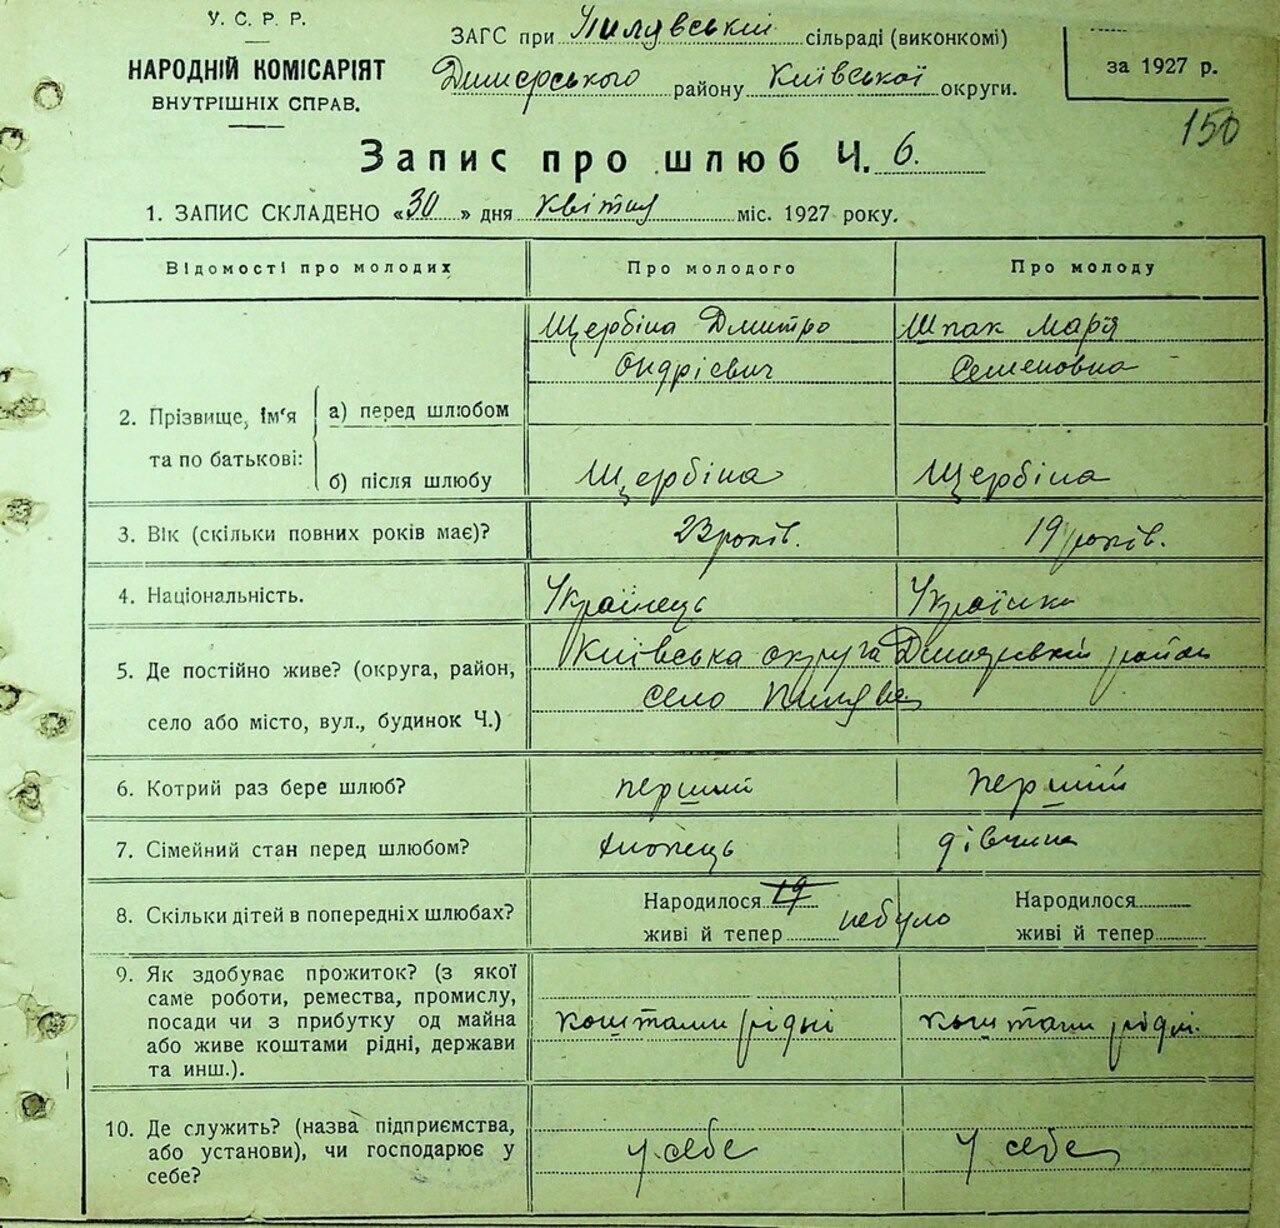 У. С. Р. Р.
НАРОДНІЙ КОМІСАРІЯТ
ВНУТРІШНІХ СПРАВ.
ЗАГС при Пилявській сільраді (виконкомі)
Димерського району Київської округи.
за 1927 р.
150
Запис про шлюб Ч. 6.
1. ЗАПИС СКЛАДЕНО «30» дня квітня міс. 1927 року.
Відомості про молодих Про молодого Про молоду
Щербіна Дмитро Шпак Марія
Ондрієвич Семеновна
2. Прізвище, ім'я та по батькові:
а) перед шлюбом
б) після шлюбу Щербіна Щербіна
3. Вік (скільки повних років має)? 23 років. 19 років.
4. Національність. Українець Українка
5. Де постійно живе? (округа, район, Київська округа Димерській район
село або місто, вул., будинок Ч.) село Пилява
6. Котрий раз бере шлюб? перший перший
7. Сімейний стан перед шлюбом? хлопець дівчина
8. Скільки дітей в попередніх шлюбах? Народилося 19 Народилося
живі й тепер небуло живі й тепер
9. Як здобуває прожиток? (з якої
саме роботи, ремества, промислу,
посади чи з прибутку од майна коштами рідні коштами рідні.
або живе коштами рідні, держави
та инш.).
10. Де служить? (назва підприємства,
або установи), чи господарює у у себе у себе
себе?